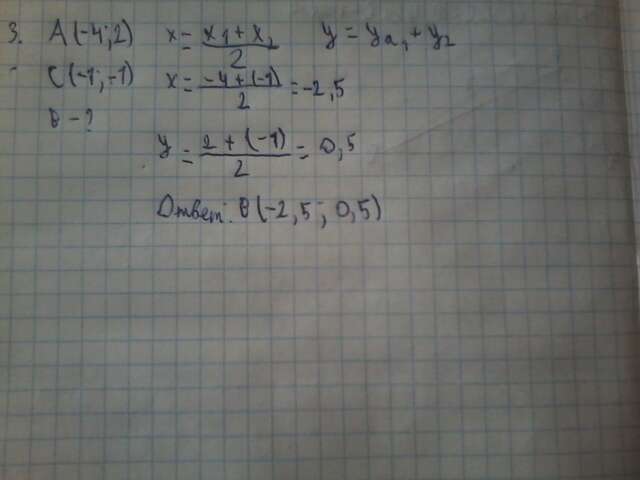 3. A(-4;2) x = x1 + x2 / 2 y = ya1 + y2
C(-1;-1) x = -4+(-1) / 2 = -2,5
B - ?
y = 2 + (-1) / 2 = 0,5
Ответ: B(-2,5; 0,5)